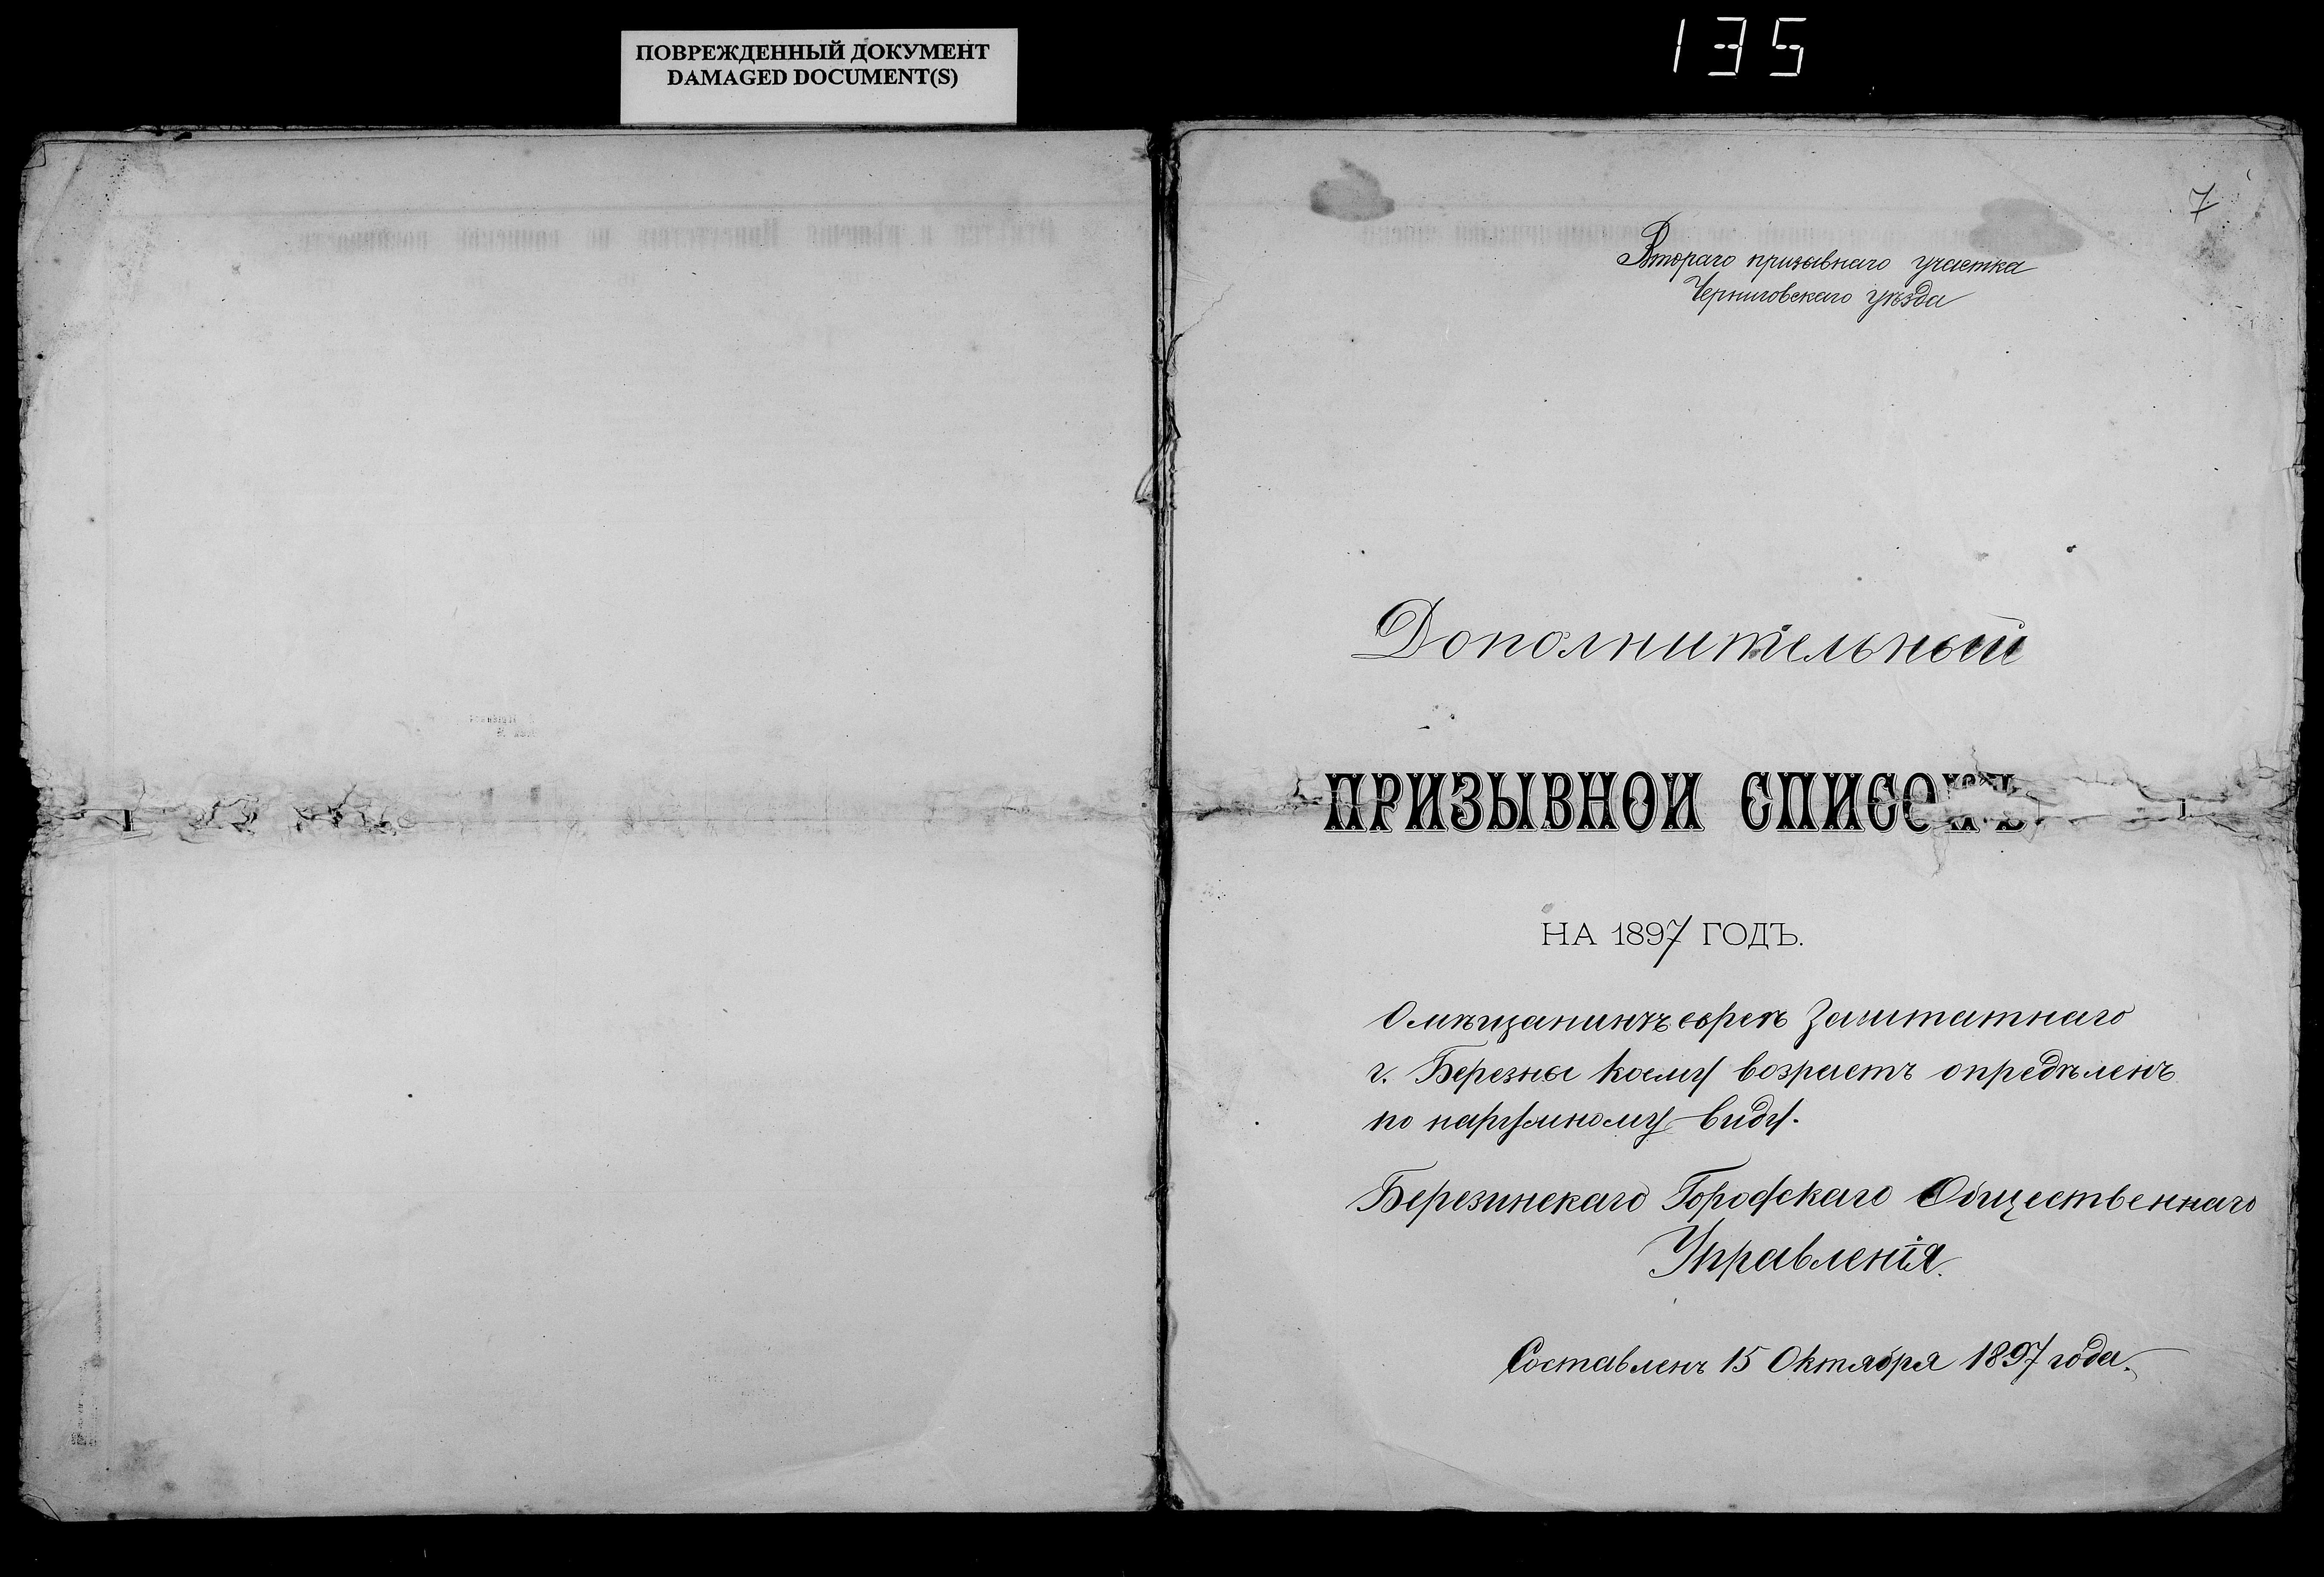 ПОВРЕЖДЕННЫЙ ДОКУМЕНТ
DAMAGED DOCUMENT(S)
135
7
Втораго призывнаго участка
Черниговскаго уѣзда
Дополнительный
ПРИЗЫВНОЙ СПИСОКЪ
НА 1897 ГОДЪ.
О мѣщанинѣ евреѣ Заштатнаго
г. Березны коему возрастъ опредѣленъ
по наружному виду.
Березинскаго Городскаго Общественнаго
Управленія.
Составленъ 15 Октября 1897 года.